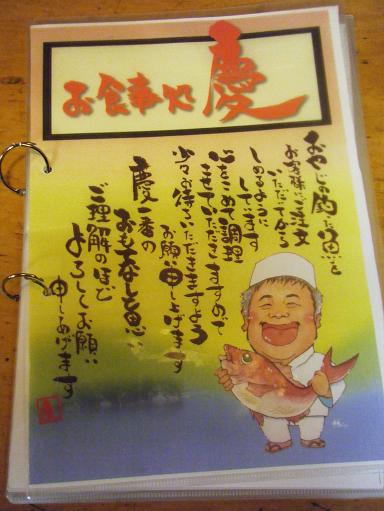 お食事処 慶
おやじの釣った魚を
お客様に注文
いただいてから
しめるように
しています
心をこめて調理
させていただきますので
少々お待ちいただきますよう
お願い申し上げます
慶一番の
おもてなしと思い
ご理解のほど
よろしくお願い
申しあげます